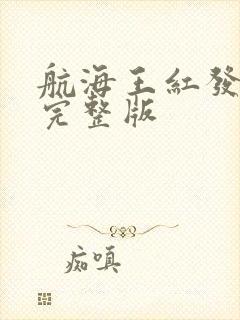 航海王紅發
完整版
痴嗔